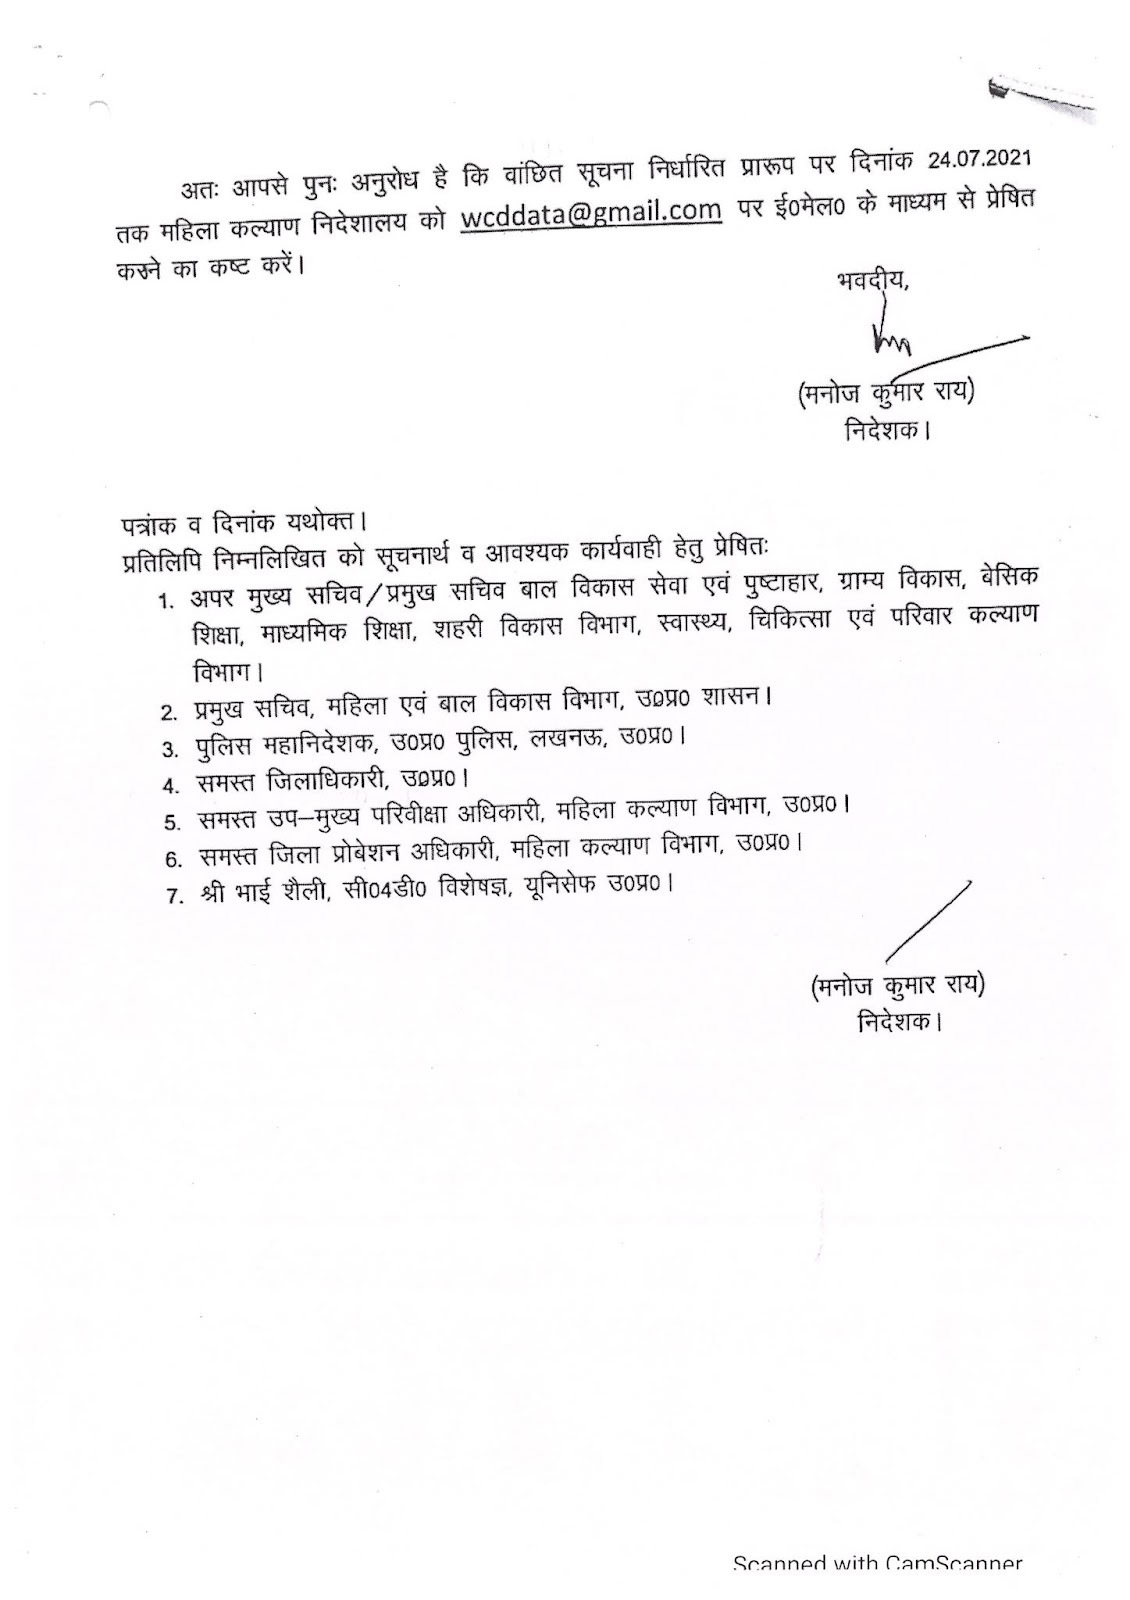 अतः आपसे पुनः अनुरोध है कि वांछित सूचना निर्धारित प्रारूप पर दिनांक 24.07.2021
तक महिला कल्याण निदेशालय को wcddata@gmail.com पर ई0मेल0 के माध्यम से प्रेषित
करने का कष्ट करें।
भवदीय,
(मनोज कुमार राय)
निदेशक।
पत्रांक व दिनांक यथोक्त।
प्रतिलिपि निम्नलिखित को सूचनार्थ व आवश्यक कार्यवाही हेतु प्रेषितः
1. अपर मुख्य सचिव/प्रमुख सचिव बाल विकास सेवा एवं पुष्टाहार, ग्राम्य विकास, बेसिक
शिक्षा, माध्यमिक शिक्षा, शहरी विकास विभाग, स्वास्थ्य, चिकित्सा एवं परिवार कल्याण
विभाग।
2. प्रमुख सचिव, महिला एवं बाल विकास विभाग, उ0प्र0 शासन।
3. पुलिस महानिदेशक, उ0प्र0 पुलिस, लखनऊ, उ0प्र0।
4. समस्त जिलाधिकारी, उ0प्र0।
5. समस्त उप–मुख्य परिवीक्षा अधिकारी, महिला कल्याण विभाग, उ0प्र0।
6. समस्त जिला प्रोबेशन अधिकारी, महिला कल्याण विभाग, उ0प्र0।
7. श्री भाई शैली, सी04डी0 विशेषज्ञ, यूनिसेफ उ0प्र0।
(मनोज कुमार राय)
निदेशक।
Scanned with CamScanner